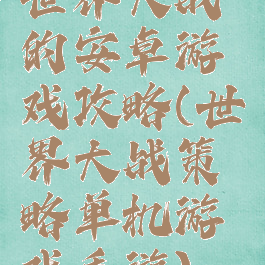 世界大战
的安卓游
戏攻略(世
界大战策
略单机游
戏手游)